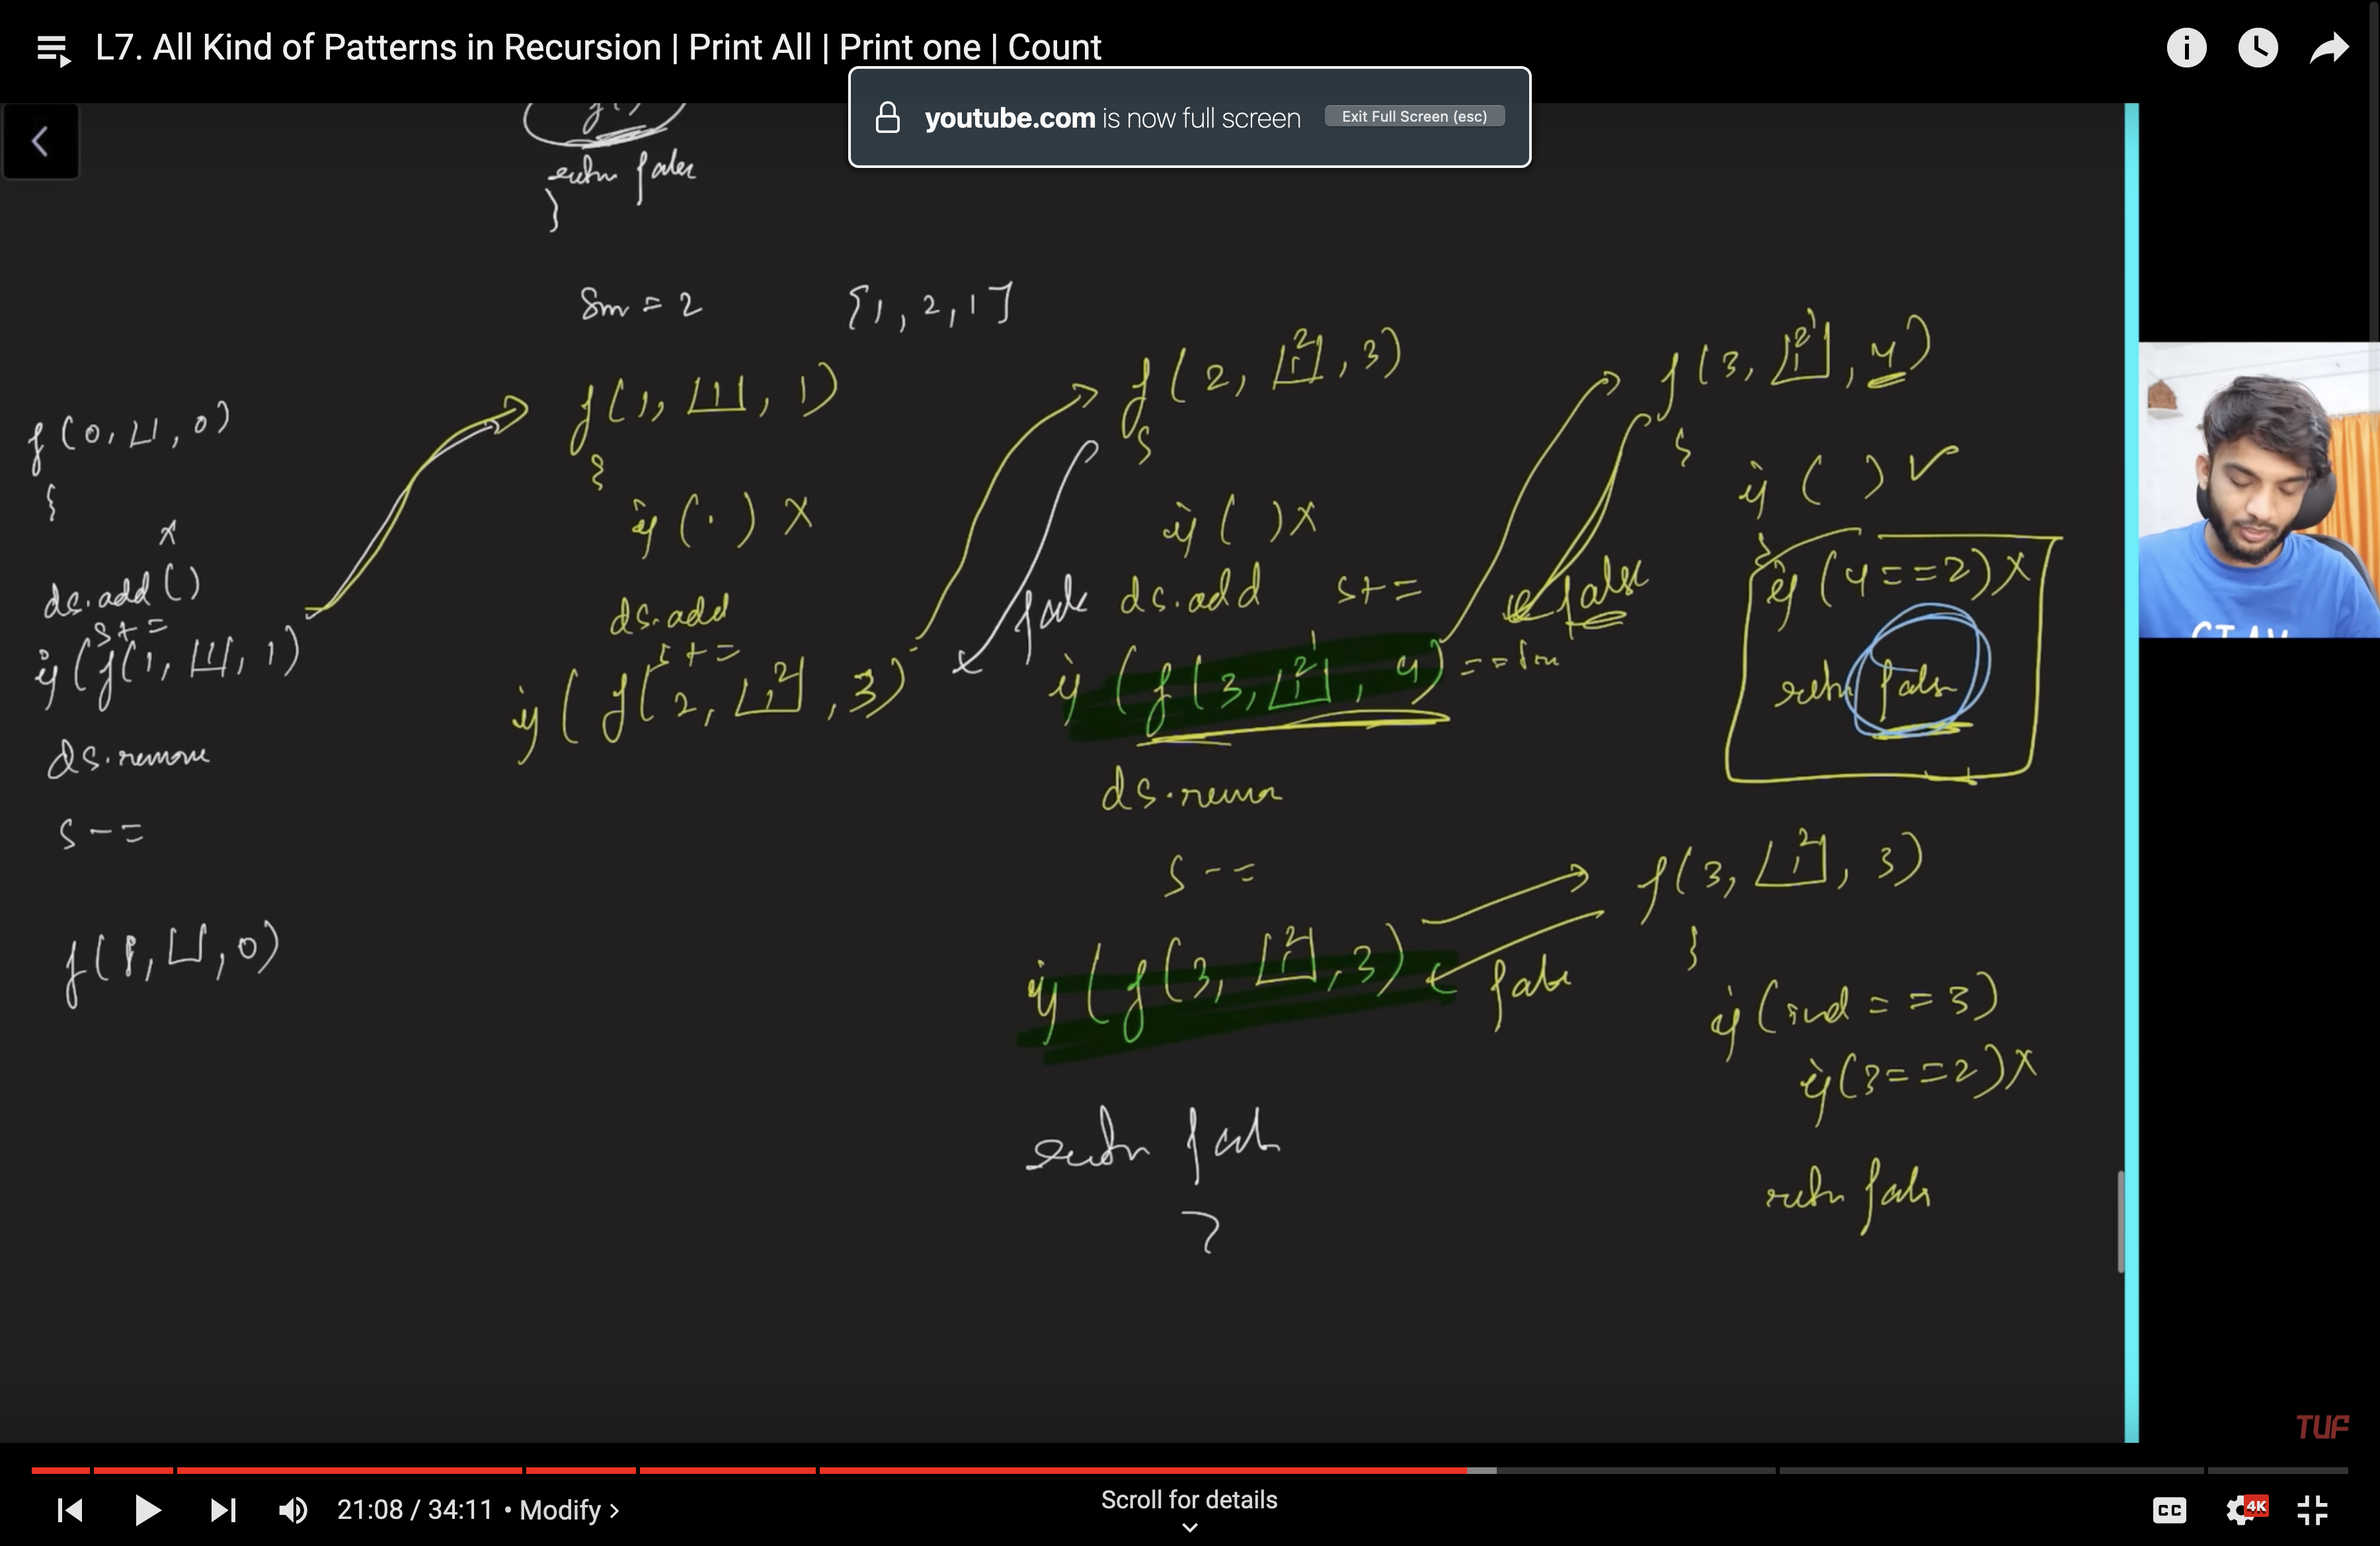 L7. All Kind of Patterns in Recursion | Print All | Print one | Count
youtube.com is now full screen
Exit Full Screen (esc)
}
Sm = 2
[1, 2, 1]
f(0, [], 0)
{
x
ds.add()
s+=
if (f(1, [1], 1)
ds.remove
s-=
f(1, [], 0)
f(1, [1], 1)
{
if (.) X
ds.add
s+=
if (f(2, [1,2], 3)
f(2, [1,2], 3)
{
if ( ) X
false
ds.add s+=
if (f(3, [1,2,1], 4) ==Sm
ds.remove
s-=
if (f(3, [1,2], 3)
false
return false
}
f(3, [1,2,1], 4)
{
if ( ) ✓
false
if (4==2) X
return false
f(3, [1,2], 3)
{
if (ind == 3)
if (3==2) X
return false
TUF
21:08 / 34:11 • Modify >
Scroll for details
CC
4K